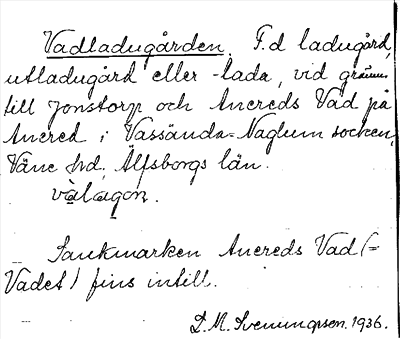 Vadladugården. F.d ladugård,
utladugård eller -lada, vid gränsen
till Jonstorp och Anereds Vad på
Anered i Vassända-Naglum socken,
Väne hd. Älfsborgs län.
vàlagọn.
Sankmarken Anereds Vad (=
Vadet) fins intill.
D. M. Svenungsen. 1936.